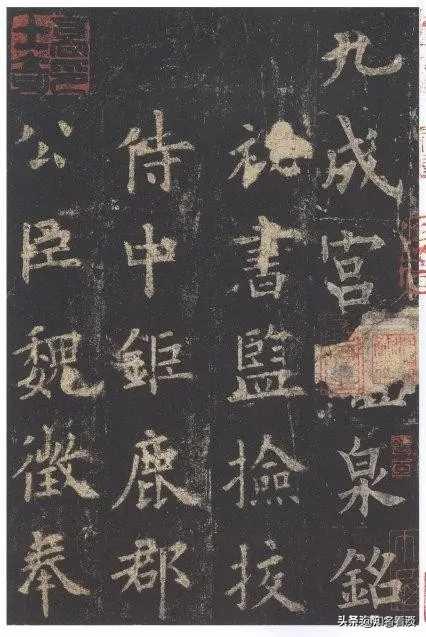 九成宮泉銘
祕書監撿挍
侍中鉅鹿郡
公臣魏徵奉
头条